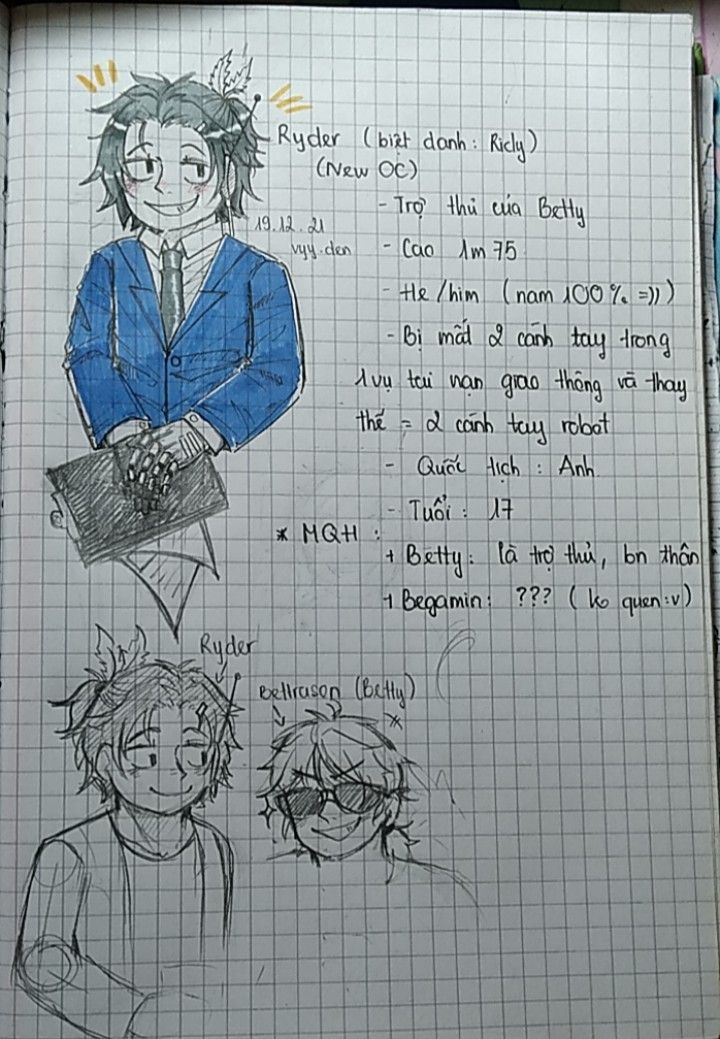 Ryder (biệt danh: Ricly)
(New OC)
- Trợ thủ của Betty
19.12.21
vyy.den
- Cao 1m75
- He/him (nam 100% =)))
- Bị mất 2 cánh tay trong
1 vụ tai nạn giao thông và thay
thế = 2 cánh tay robot
- Quốc tịch : Anh
- Tuổi : 17
* MQH :
+ Betty: là trợ thủ, bn thân
+ Begamin: ??? ( ko quen :v)
Ryder
Bettrason (Betty)